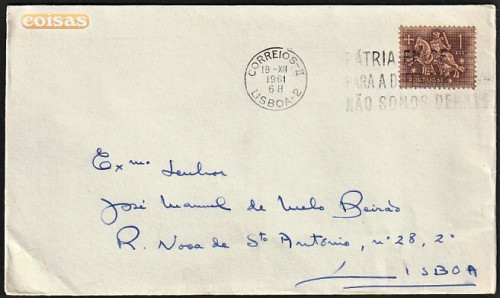 coisas
CORREIOS-II
18-XII
1961
6 H
LISBOA-2
PÁTRIA EM
PARA A D
NÃO SOMOS DEMAIS
1
PORTUGAL
Exmo Senhor
José Manuel de Melo Beirão
R. Nova de Sto António, nº 28, 2º
LISBOA